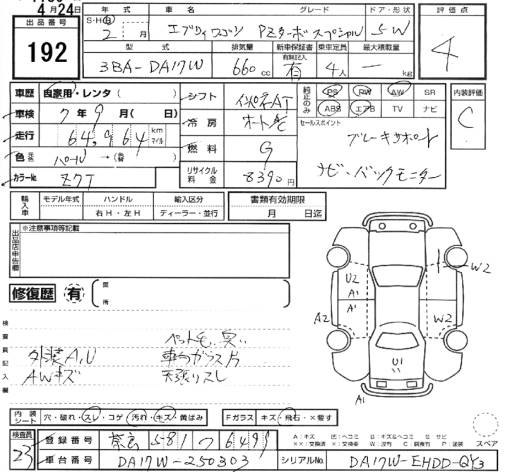 4月24日
出品番号
192
年式 車名 グレード ドア・形状
S・H・R 2 月 エブリィワゴン PZターボスペシャル 5W
型式 排気量 新車保証書 有無記入 乗車定員 最大積載量
3BA-DA17W 660 cc 有 4人 — kg
評価点
4
車歴 自家用・レンタ( )
車検 7年9月( 日)
走行 64,964 km マイル
色 元色 パール →(替 )
カラーNo. Z7T
シフト インパネAT
冷房 オートA/C
燃料 G
リサイクル料金 8390円
純正のみ PS RW AW SR
ABS エアB TV ナビ
内装評価
C
セールスポイント
ブレーキサポート
ナビ・バックモニター
輸入車 モデル年式 ハンドル 輸入区分
右H・左H ディーラー・並行
書類有効期限
月 日迄
出品店申告欄
※注意事項等記載
修復歴 有 箇所
検査員記入欄
ペット毛、臭い
外装A,U
AWキズ
天張りスレ
U2
A1
A2
A1
W2
W2
U1
A1
内装シート 穴・破れ・スレ・コゲ・汚れ・キズ・黄ばみ
Fガラス キズ・飛石・×要す
スペア
検査員 23
登録番号 581 つ 6499
車台番号 DA17W-250303
シリアルNo. DA17W-EHDD-QY3